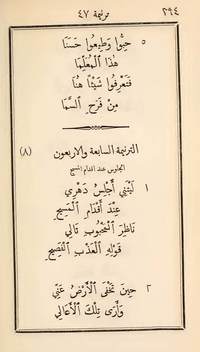 ٢٩٤ ترنيمة ٤٧
٥ حِبُّوا وَطِيعُوا حَسَنَا
هٰذَا ٱلْمُعَلِّمَا
فَتَعْرِفُوا شَيْئًا هُنَا
مِنْ فَرَحِ ٱلسَّمَا
الترنيمة السابعة والاربعون (٨)
الجلوس عند اقدام المسيح
١ لَيْتَنِي أَجْلِسُ دَهْرِي
عِنْدَ أَقْدَامِ ٱلْمَسِيحِ
نَاظِرَ ٱلْمَحْبُوبِ تَالِي
قَوْلِهِ ٱلْعَذْبِ ٱلْفَصِيحِ
٢ حِينَ تَخْفَى ٱلْأَرْضُ عَنِّي
وَأَرَى تِلْكَ ٱلْأَعَالِي